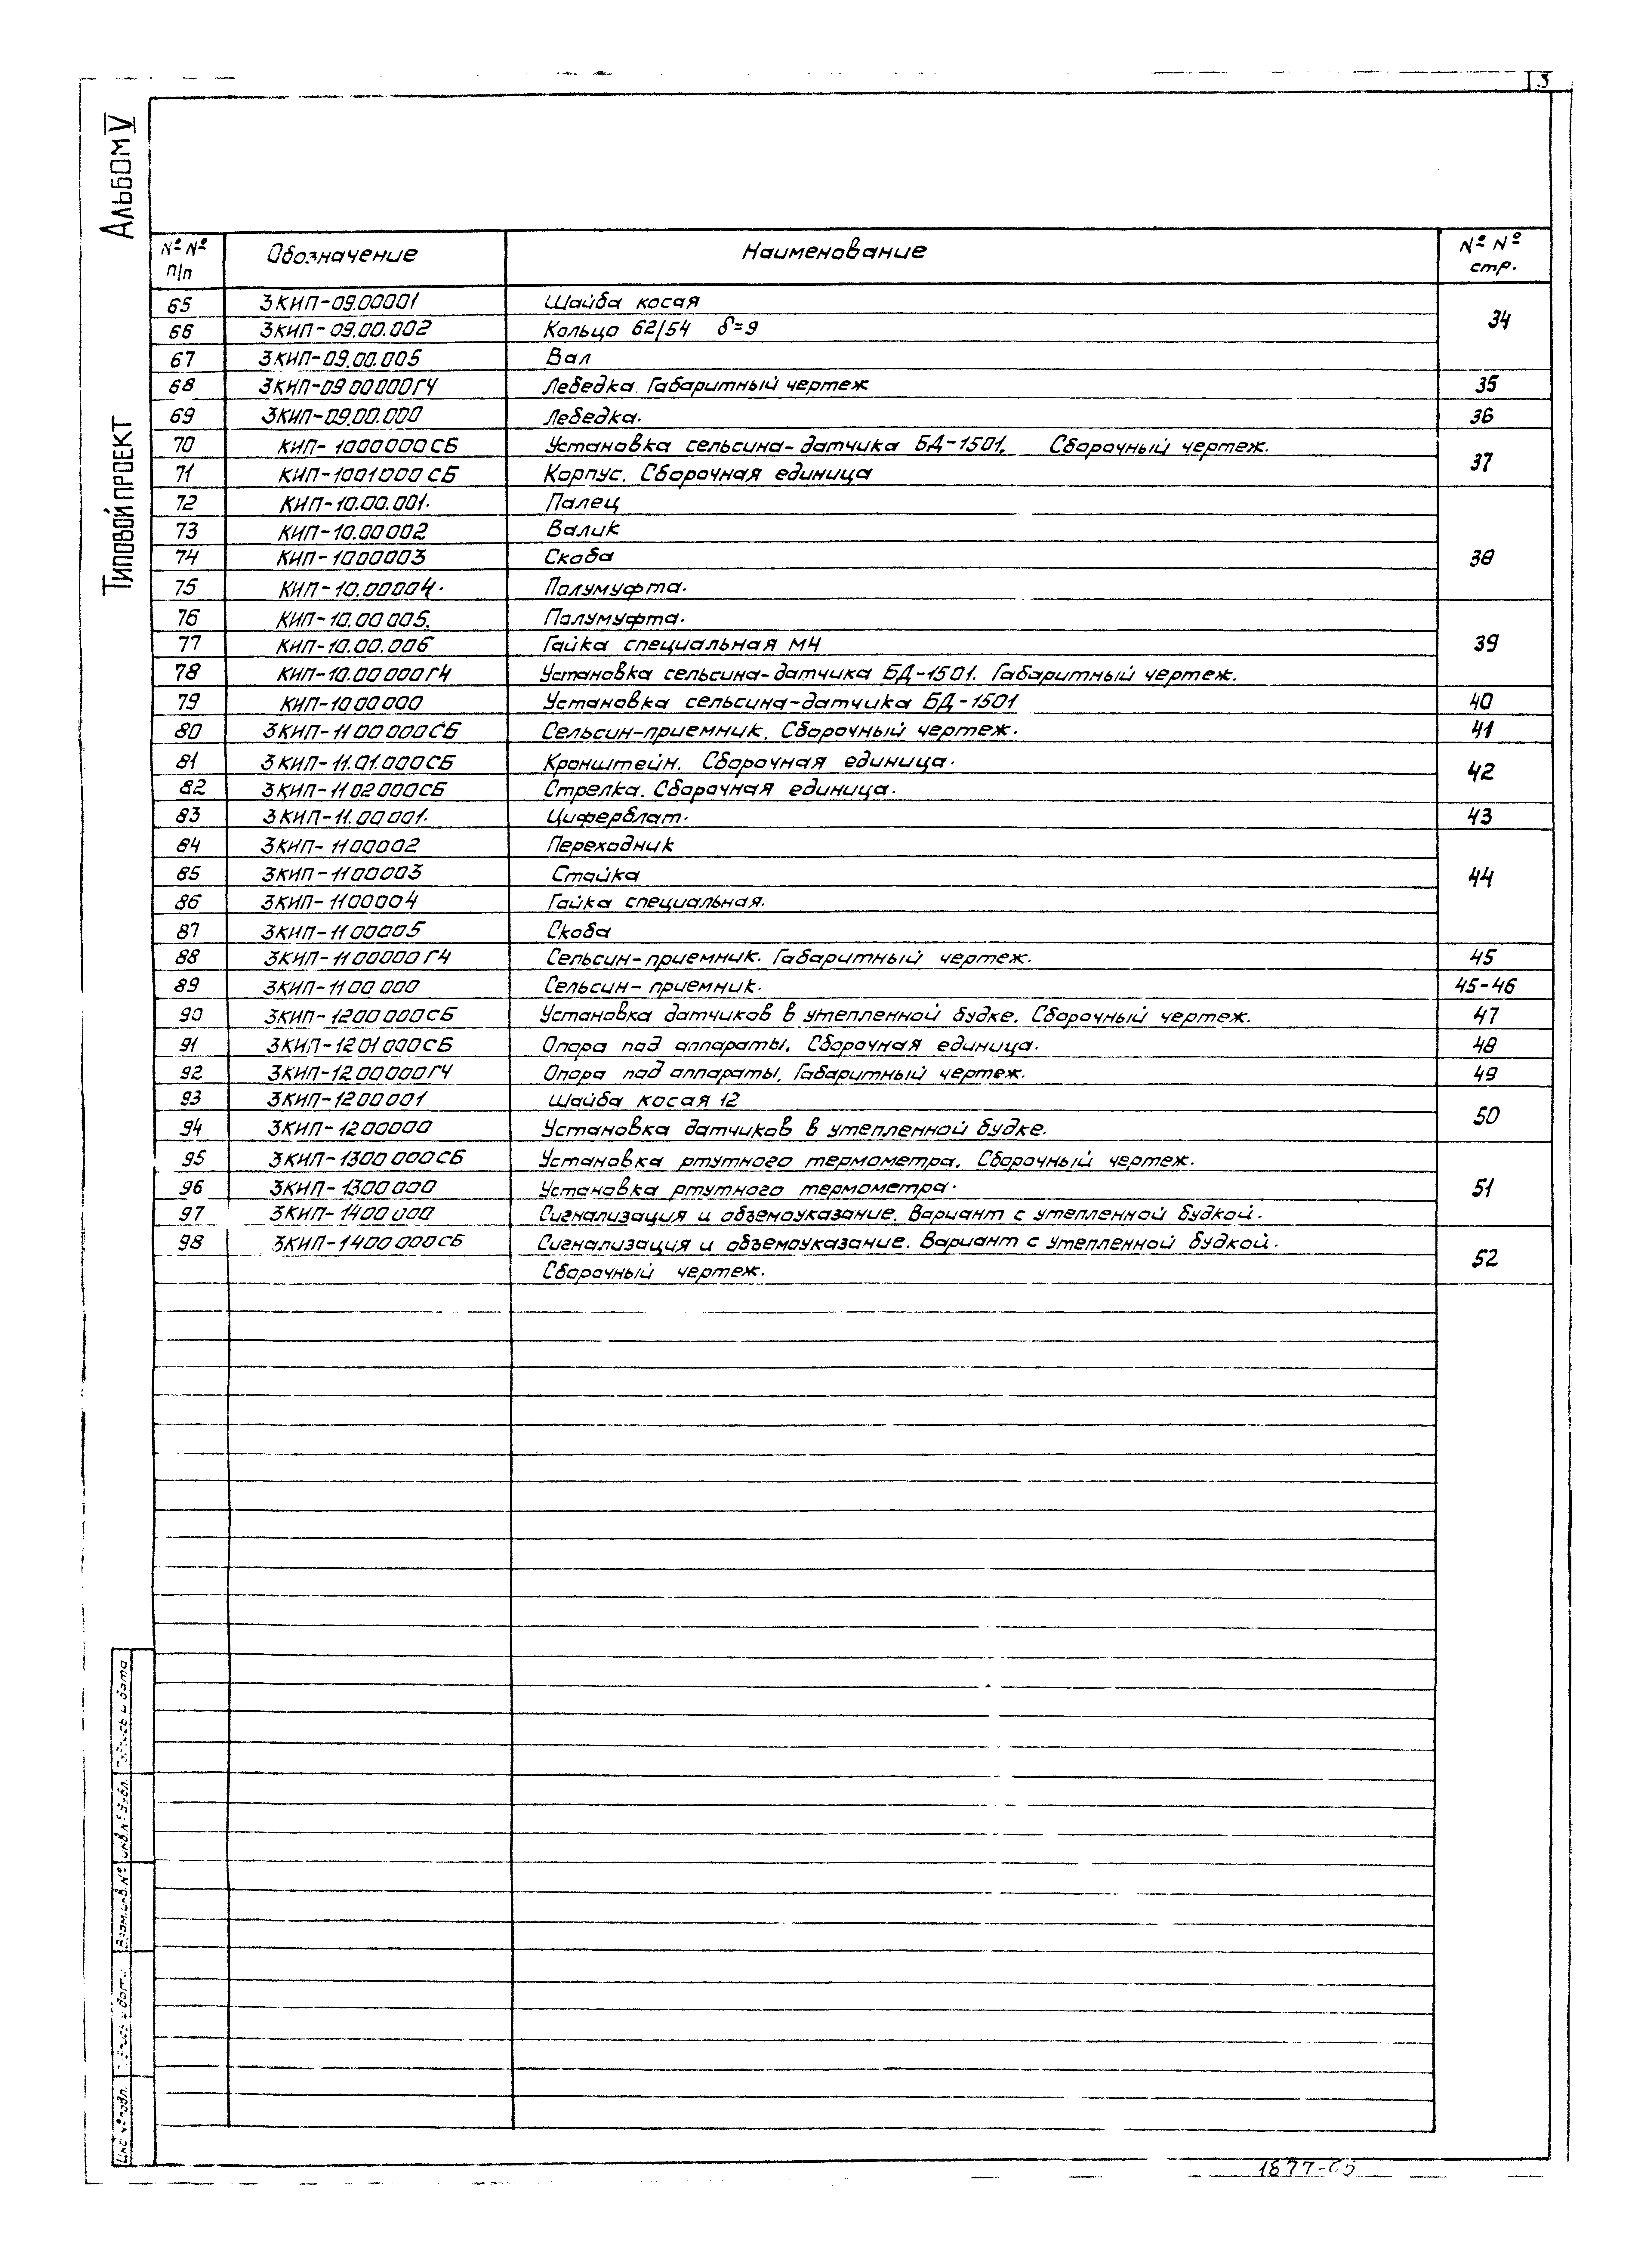 3
Альбом V
Типовой проект
№ № п/п Обозначение Наименование № № стр.
65 3КИП-09.00001 Шайба косая 34
66 3КИП-09.00.002 Кольцо 62/54 δ=9
67 3КИП-09.00.005 Вал
68 3КИП-09 00 000ГЧ Лебедка. Габаритный чертеж 35
69 3КИП-09.00.000 Лебедка. 36
70 КИП-1000000СБ Установка сельсина-датчика БД-1501. Сборочный чертеж. 37
71 КИП-1001000 СБ Корпус. Сборочная единица
72 КИП-10.00.001. Палец 38
73 КИП-10.00002 Валик
74 КИП-1000003 Скоба
75 КИП-10.00004. Полумуфта.
76 КИП-10.00 005. Полумуфта. 39
77 КИП-10.00.006 Гайка специальная М4
78 КИП-10.00 000ГЧ Установка сельсина-датчика БД-1501. Габаритный чертеж.
79 КИП-1000000 Установка сельсина-датчика БД-1501 40
80 3КИП-11 00 000СБ Сельсин-приемник. Сборочный чертеж. 41
81 3КИП-11.01.000СБ Кронштейн. Сборочная единица. 42
82 3КИП-11 02 000СБ Стрелка. Сборочная единица.
83 3КИП-11.00 001. Циферблат. 43
84 3КИП-1100002 Переходник 44
85 3КИП-1100003 Стойка
86 3КИП-1100004 Гайка специальная.
87 3КИП-11 00005 Скоба
88 3КИП-1100000 ГЧ Сельсин-приемник. Габаритный чертеж. 45
89 3КИП-1100 000 Сельсин-приемник. 45-46
90 3КИП-1200 000СБ Установка датчиков в утепленной будке. Сборочный чертеж. 47
91 3КИП-12 01 000СБ Опора под аппараты. Сборочная единица. 48
92 3КИП-12 00 000ГЧ Опора под аппараты. Габаритный чертеж. 49
93 3КИП-1200001 Шайба косая 12 50
94 3КИП-1200000 Установка датчиков в утепленной будке.
95 3КИП-1300 000СБ Установка ртутного термометра. Сборочный чертеж. 51
96 3КИП-1300 000 Установка ртутного термометра.
97 3КИП-1400 000 Сигнализация и объемоуказание. Вариант с утепленной будкой.
98 3КИП-1400 000СБ Сигнализация и объемоуказание. Вариант с утепленной будкой. 52
Сборочный чертеж.
Подпись и дата
Инв.№ дубл.
Взам.инв.№
Подпись и дата
Инв.№ подл.
1877-05